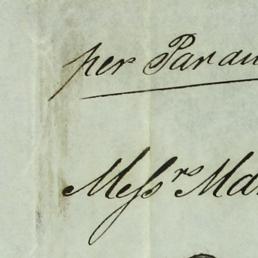 per Paran
Messrs Ma